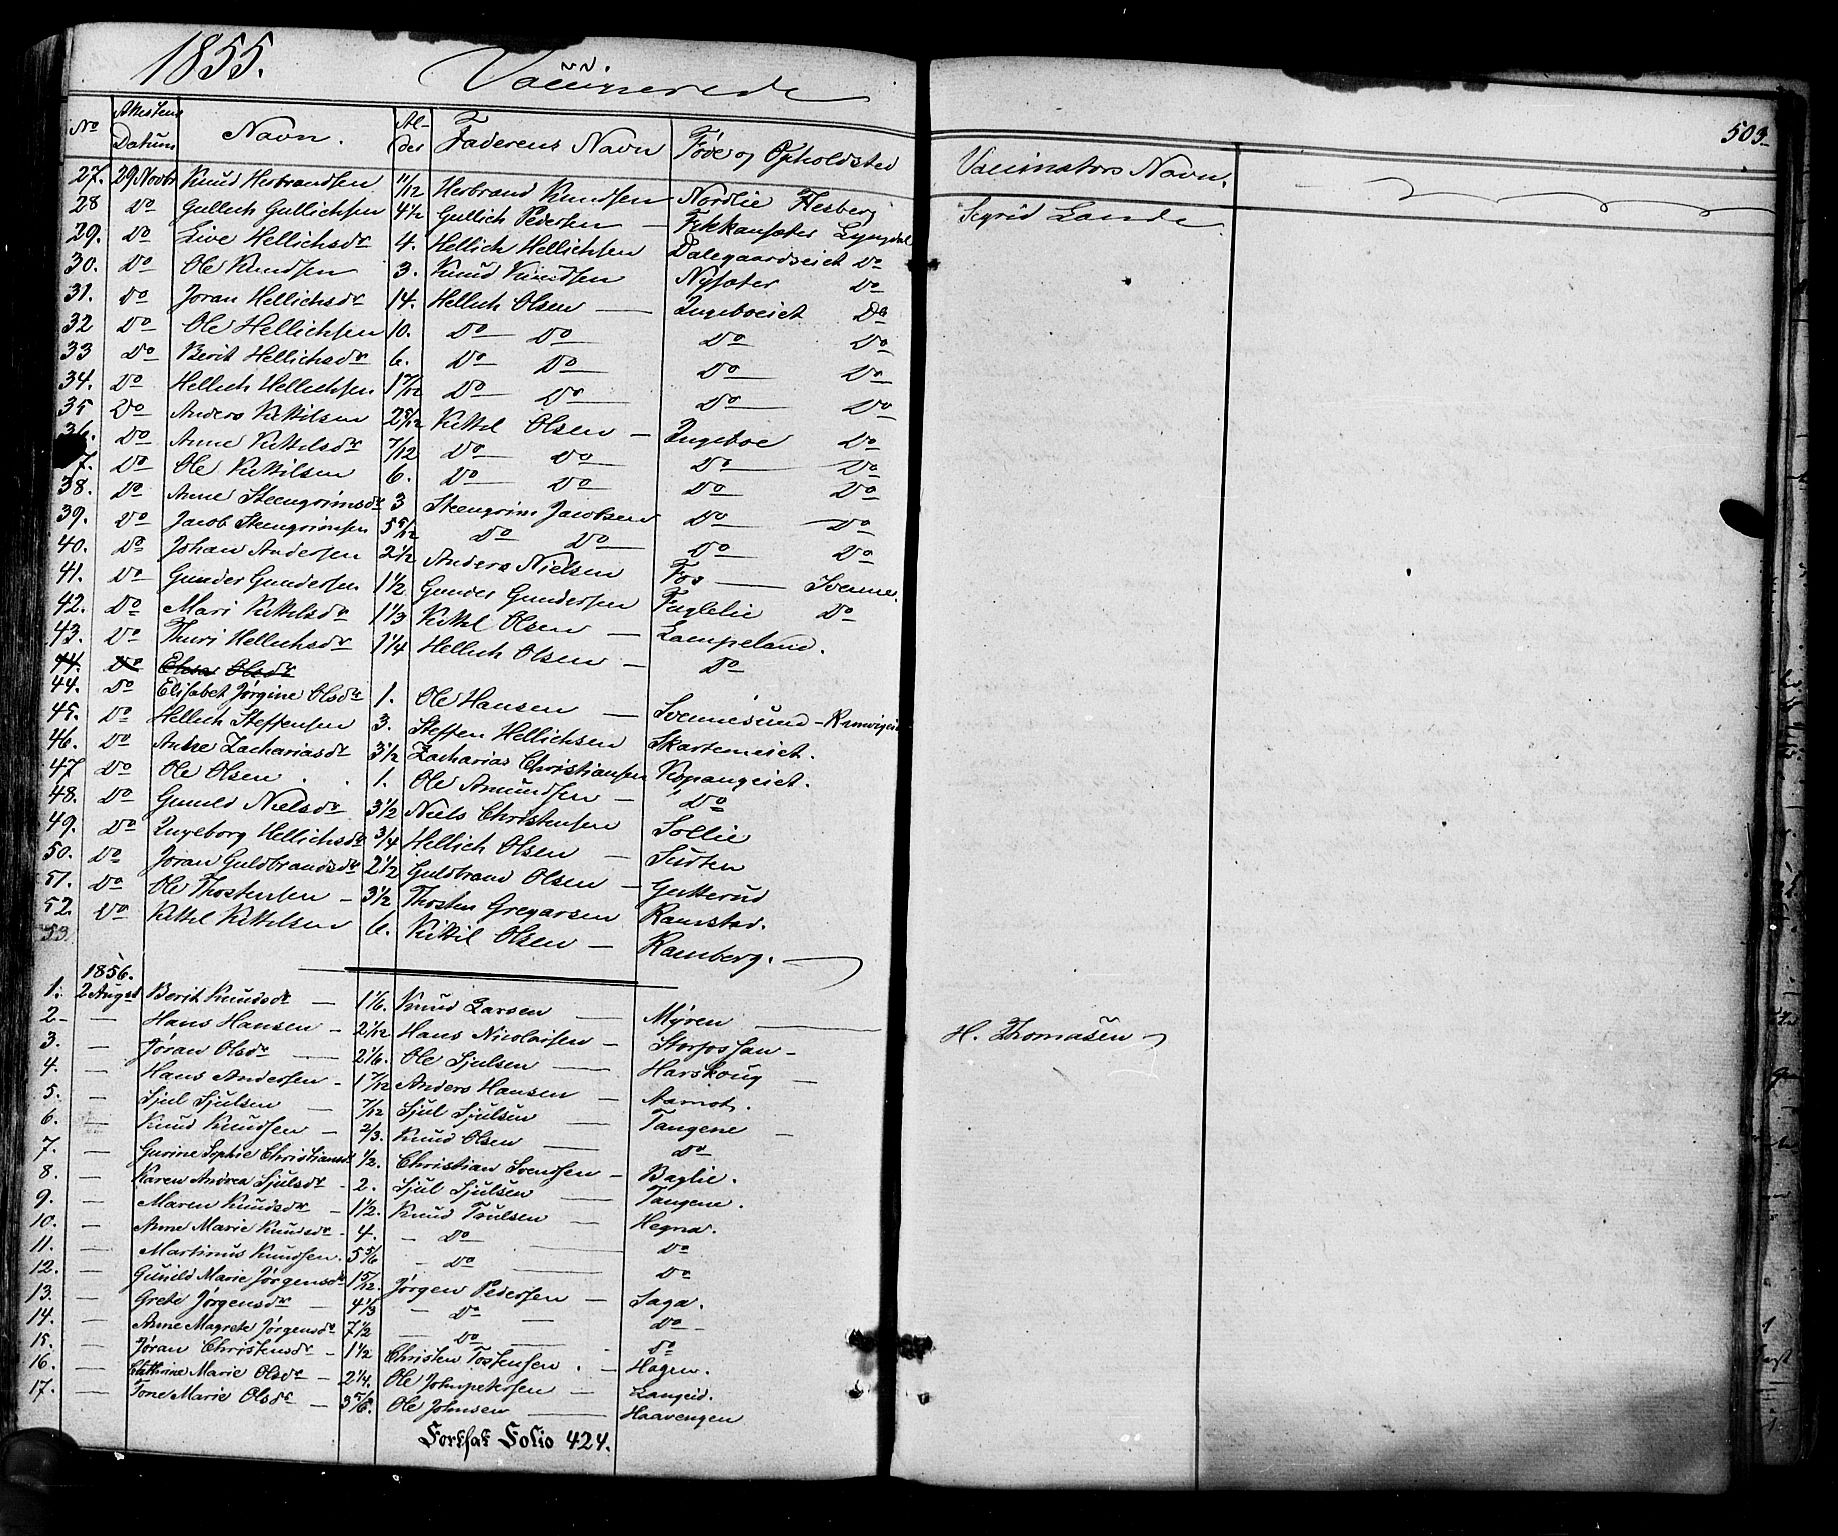 1855. Vaccinerede
503
No Attestens Datum Navn. Alder Faderens Navn Føde og Opholdsted Vaccinators Navn.
27. 29 Novbr Knud Herbrandsen 11/12 Herbrand Knudsen Nordlie Flesberg Sigrid Lande
28 Do Gullich Gullichsen 4 1/2 Gullich Pedersen — Fekkansæter Lyngdal
29. Do Live Hellichsdr 4. Hellich Hellichsen Dalegaardseiet Do
30. Do Ole Knudsen 3. Knud Knudsen Nysæter Do
31. Do Joran Hellichsdr 14. Hellich Olsen — Ingeboeiet Do
32 Do Ole Hellichsen 10. Do Do Do Do
33 Do Berit Hellichsdr 6. Do Do Do Do
34. Do Hellich Hellichsen 1 7/12 Do Do Do Do
35 Do Anders Kittilsen 2 8/12 Kittil Olsen — Ingeboe Do
36. Do Anne Kittelsdr 7/12 Do Do Do Do
7. Do Ole Kittilsen 6. Do Do Do Do
38. Do Anne Steengrimsdr 3 Steengrim Jacobsen Do Do
39. Do Jacob Steengrimsen 5 5/12 Do Do Do Do
40. Do Johan Andersen 2 1/2 Anders Nielsen Fos — Svenne.
41. Do Gunder Gundersen 1 1/2 Gunder Gundersen Fuglelie Do
42. Do Mari Kittelsdr 1 1/3 Kittel Olsen — Lampeland.
43. Do Thuri Hellichsdr 1 1/4 Hellich Olsen — Do
44. Do Elisa Olsdr
44. Do Elisabet Jørgine Olsdr 1. Ole Hansen — Svennesund-
45. Do Hellich Steffensen 3. Steffen Hellichsen Skarteneiet.
46. Do Anne Zachariasdr 3 1/2 Zacharias Christiansen Kopangeiet.
47 Do Ole Olsen 1. Ole Amundsen — Do
48. Do Gunild Nielsdr 3 1/2 Niels Christensen Sollie
49. Do Ingeborg Hellichsdr 3/4 Hellich Olsen — Sudten
50. Do Joran Guldbrandsdr 2 1/2 Guldbrand Olsen — Gutterud
51. Do Ole Thostensen — 3 1/2 Thosten Gregarsen Ramstad.
52. Do Kittel Kittelsen 6. Kittil Olsen — Ramberg.
53
1856.
1. 2 August Berit Knudsdr — 1 1/6. Knud Larsen — Mÿren — H. Thomasen
2. — Hans Hansen — 2 1/12 Hans Nicolaisen — Storfossan —
3. — Jøran Olsdr — 2 1/6. Ole Sjulsen — Harskoug —
4. — Hans Andersen — 1 7/12 Anders Hansen — Aamot.
5. — Sjul Sjulsen — 7/12 Sjul Sjulsen — Tangene —
6. — Knud Knudsen — 2/3. Knud Olsen — Do
7. — Gurine Sophie Christiansdr 1/2. Christian Svendsen — Baglie.
8. — Karen Andrea Sjulsdr - 2. Sjul Sjulsen — Tangene.
9. — Maren Knudsdr — 1 1/2. Knud Trulsen — Hegna.
10. — Anne Marie Knudsdr - 4. - Do — Do
11. — Martinus Knudsen. 5 5/6 - Do — Do
12. — Gunild Marie Jørgensdr 1 5/12. Jørgen Pedersen — Saga.
13. — Grete Jørgensdr — 4 1/3 — Do — Do —
14. — Anne Magrete Jørgensdr 7 1/2 — Do — Do
15. — Jøran Christensdr - 1 1/2 Christen Tostensen. — Hagen.
16. — Cathrine Marie Olsdr — 2 1/4. Ole Johnpetersen — Langeid.
17. — Tone Marie Olsdr — 3 5/6. Ole Johnsen — Haavengen
Fortsat Folio 424.